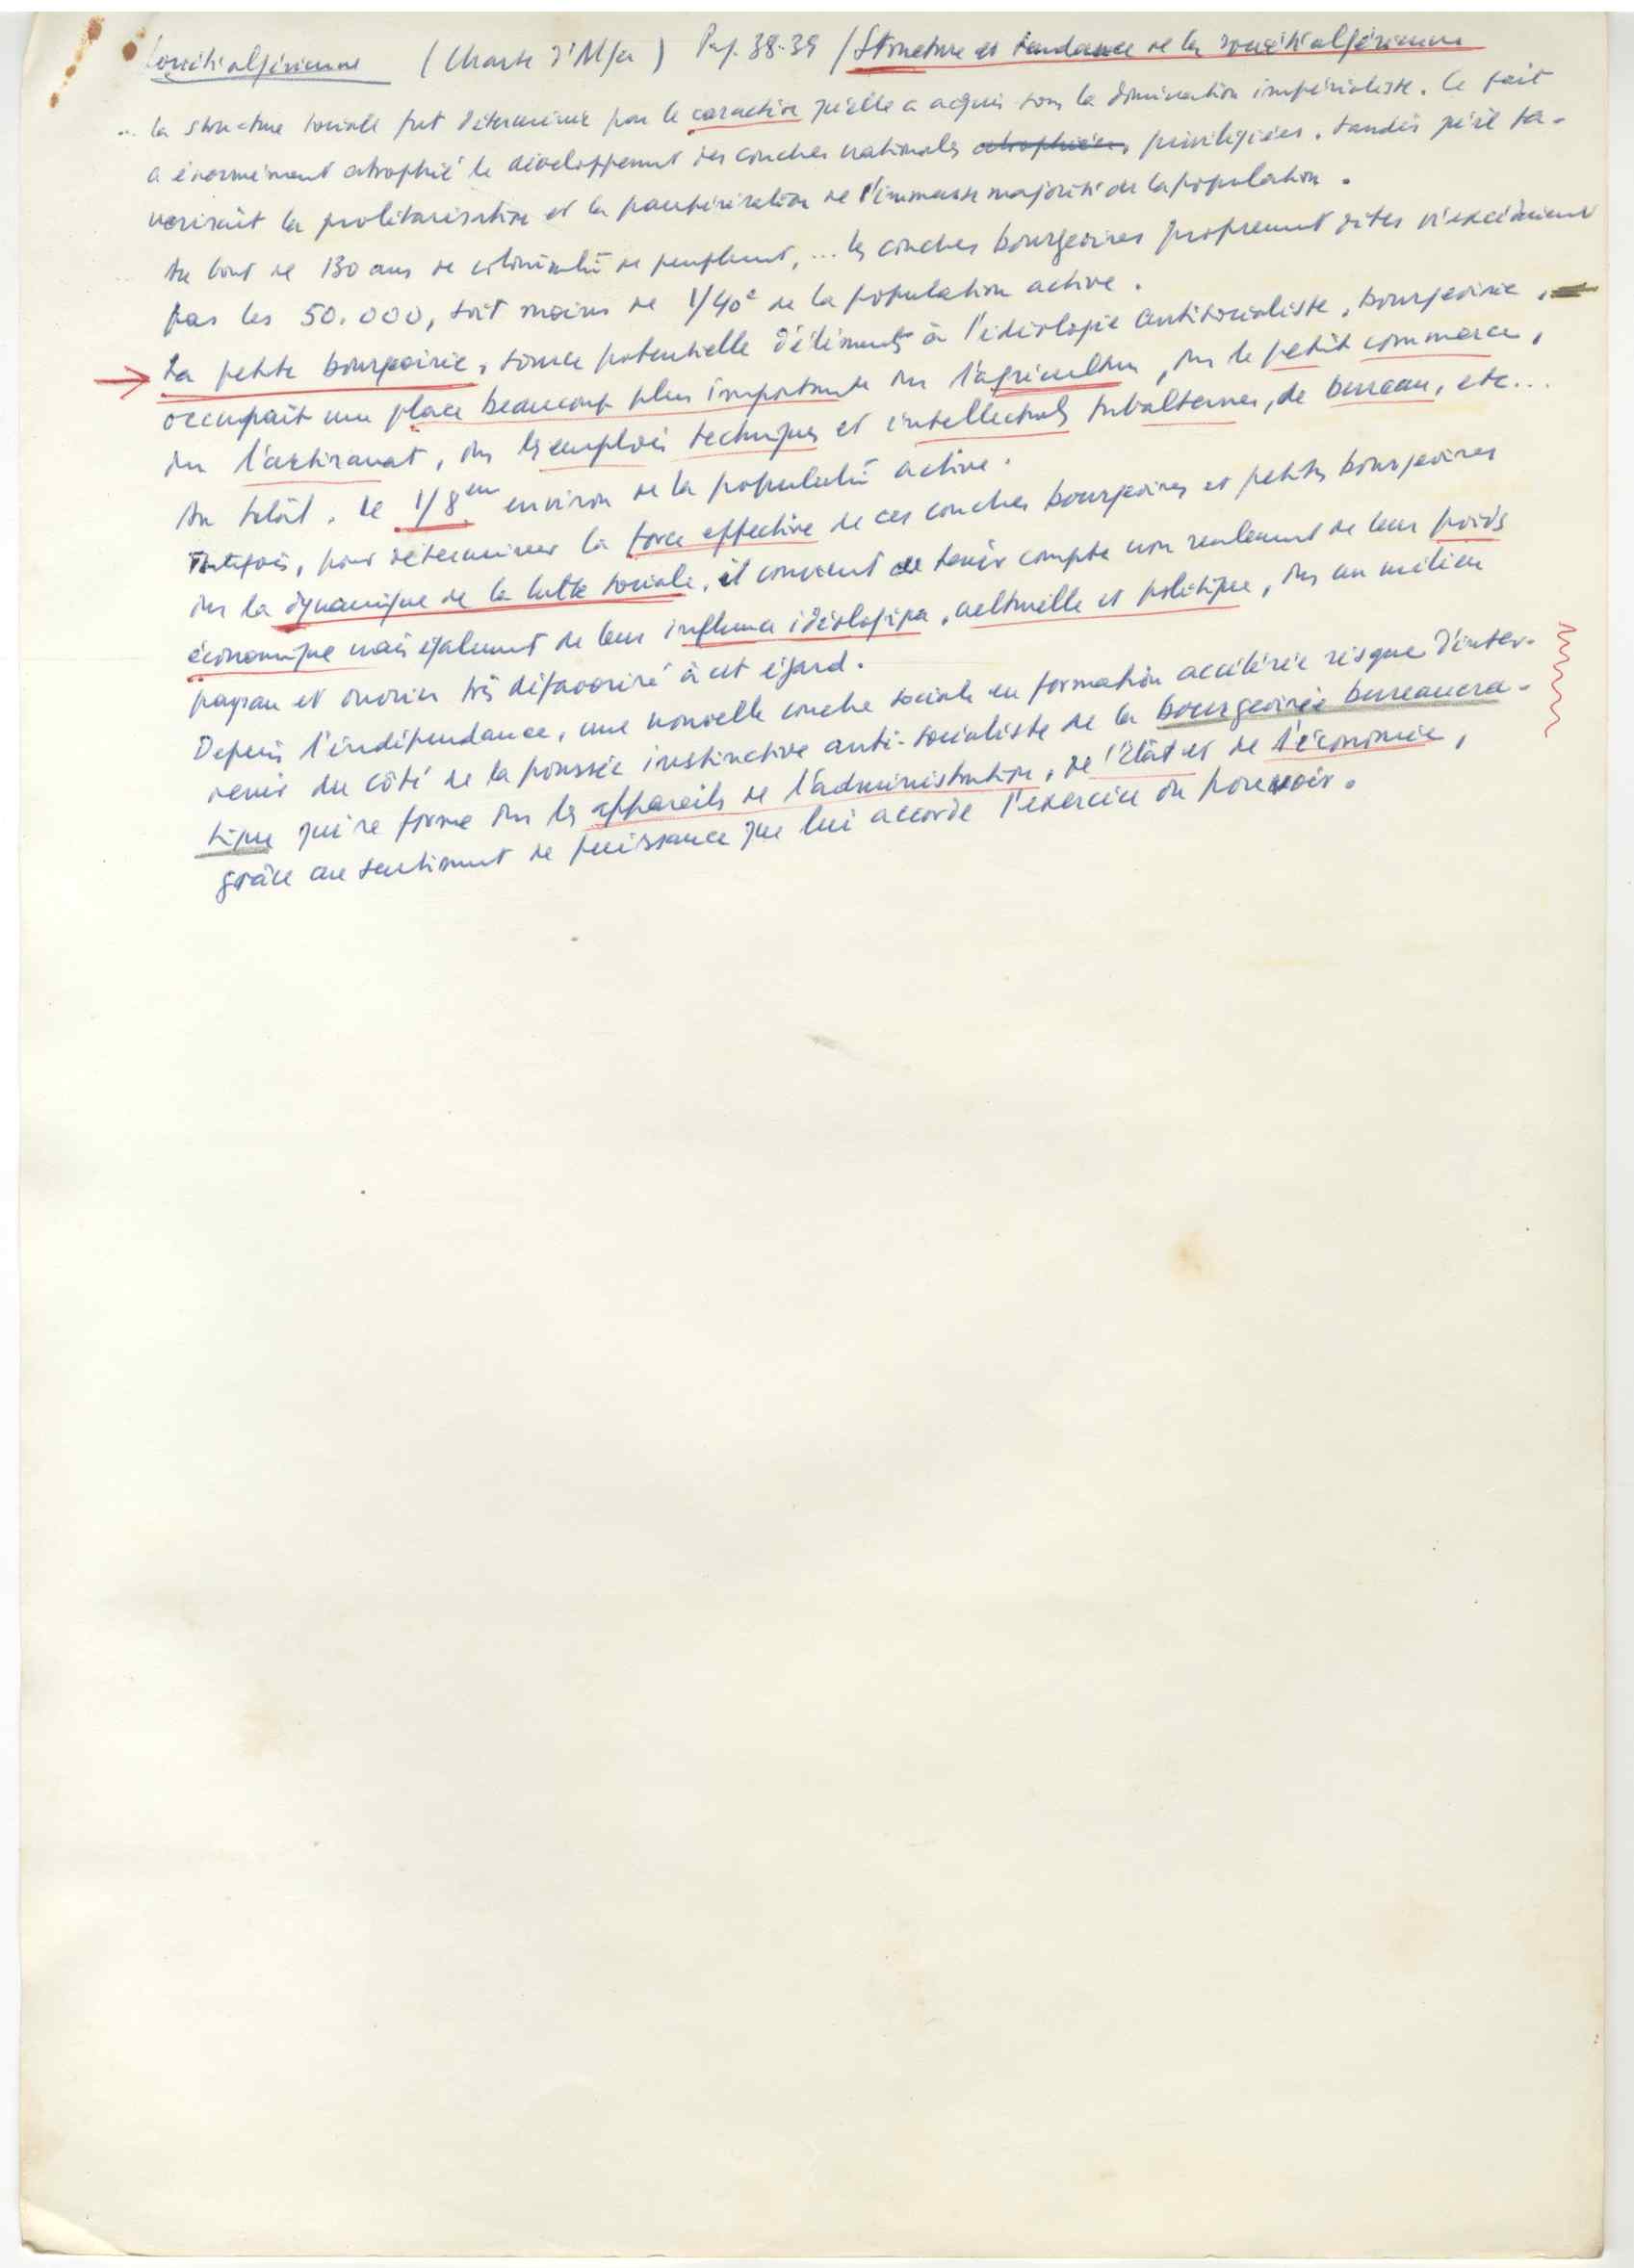 Société algérienne (Charte d'Alger) Pag. 38-39 / Structure et tendance de la société algérienne
... la structure sociale fut déterminée par le caractère qu'elle a acquis sous la domination impérialiste. Ce fait
a énormément atrophié le développement des couches nationales atrophiées, privilégiées. tandis qu'il fa-
vorisait la prolétarisation et la paupérisation de l'immense majorité de la population.
Au bout de 130 ans de colonialū de peuplement, ... les couches bourgeoises proprement dites n'excédaient
pas les 50.000, soit moins de 1/40e de la population active.
La petite bourgeoisie, source potentielle d'éléments à l'idéologie antisocialiste, bourgeoisie,
occupait une place beaucoup plus importante ds l'agriculture, ds le petit commerce,
ds l'artisanat, ds les emplois techniques et intellectuels subalternes, de bureau, etc...
Au total, le 1/8em environ de la populatū active.
Toutefois, pour déterminer la force effective de ces couches bourgeoises et petites bourgeoises
ds la dynamique de la lutte sociale, il convient de tenir compte non seulement de leur poids
économique mais également de leur influence idéologique, culturelle et politique, ds un milieu
paysan et ouvrier très défavorisé à cet égard.
Depuis l'indépendance, une nouvelle couche sociale en formation accélérée risque d'inter-
venir du côté de la poussée instinctive anti-socialiste de la bourgeoisie bureaucra-
tique qui se forme ds les appareils de l'administration, de l'État et de l'économie,
grâce au sentiment de puissance que lui accorde l'exercice du pouvoir.